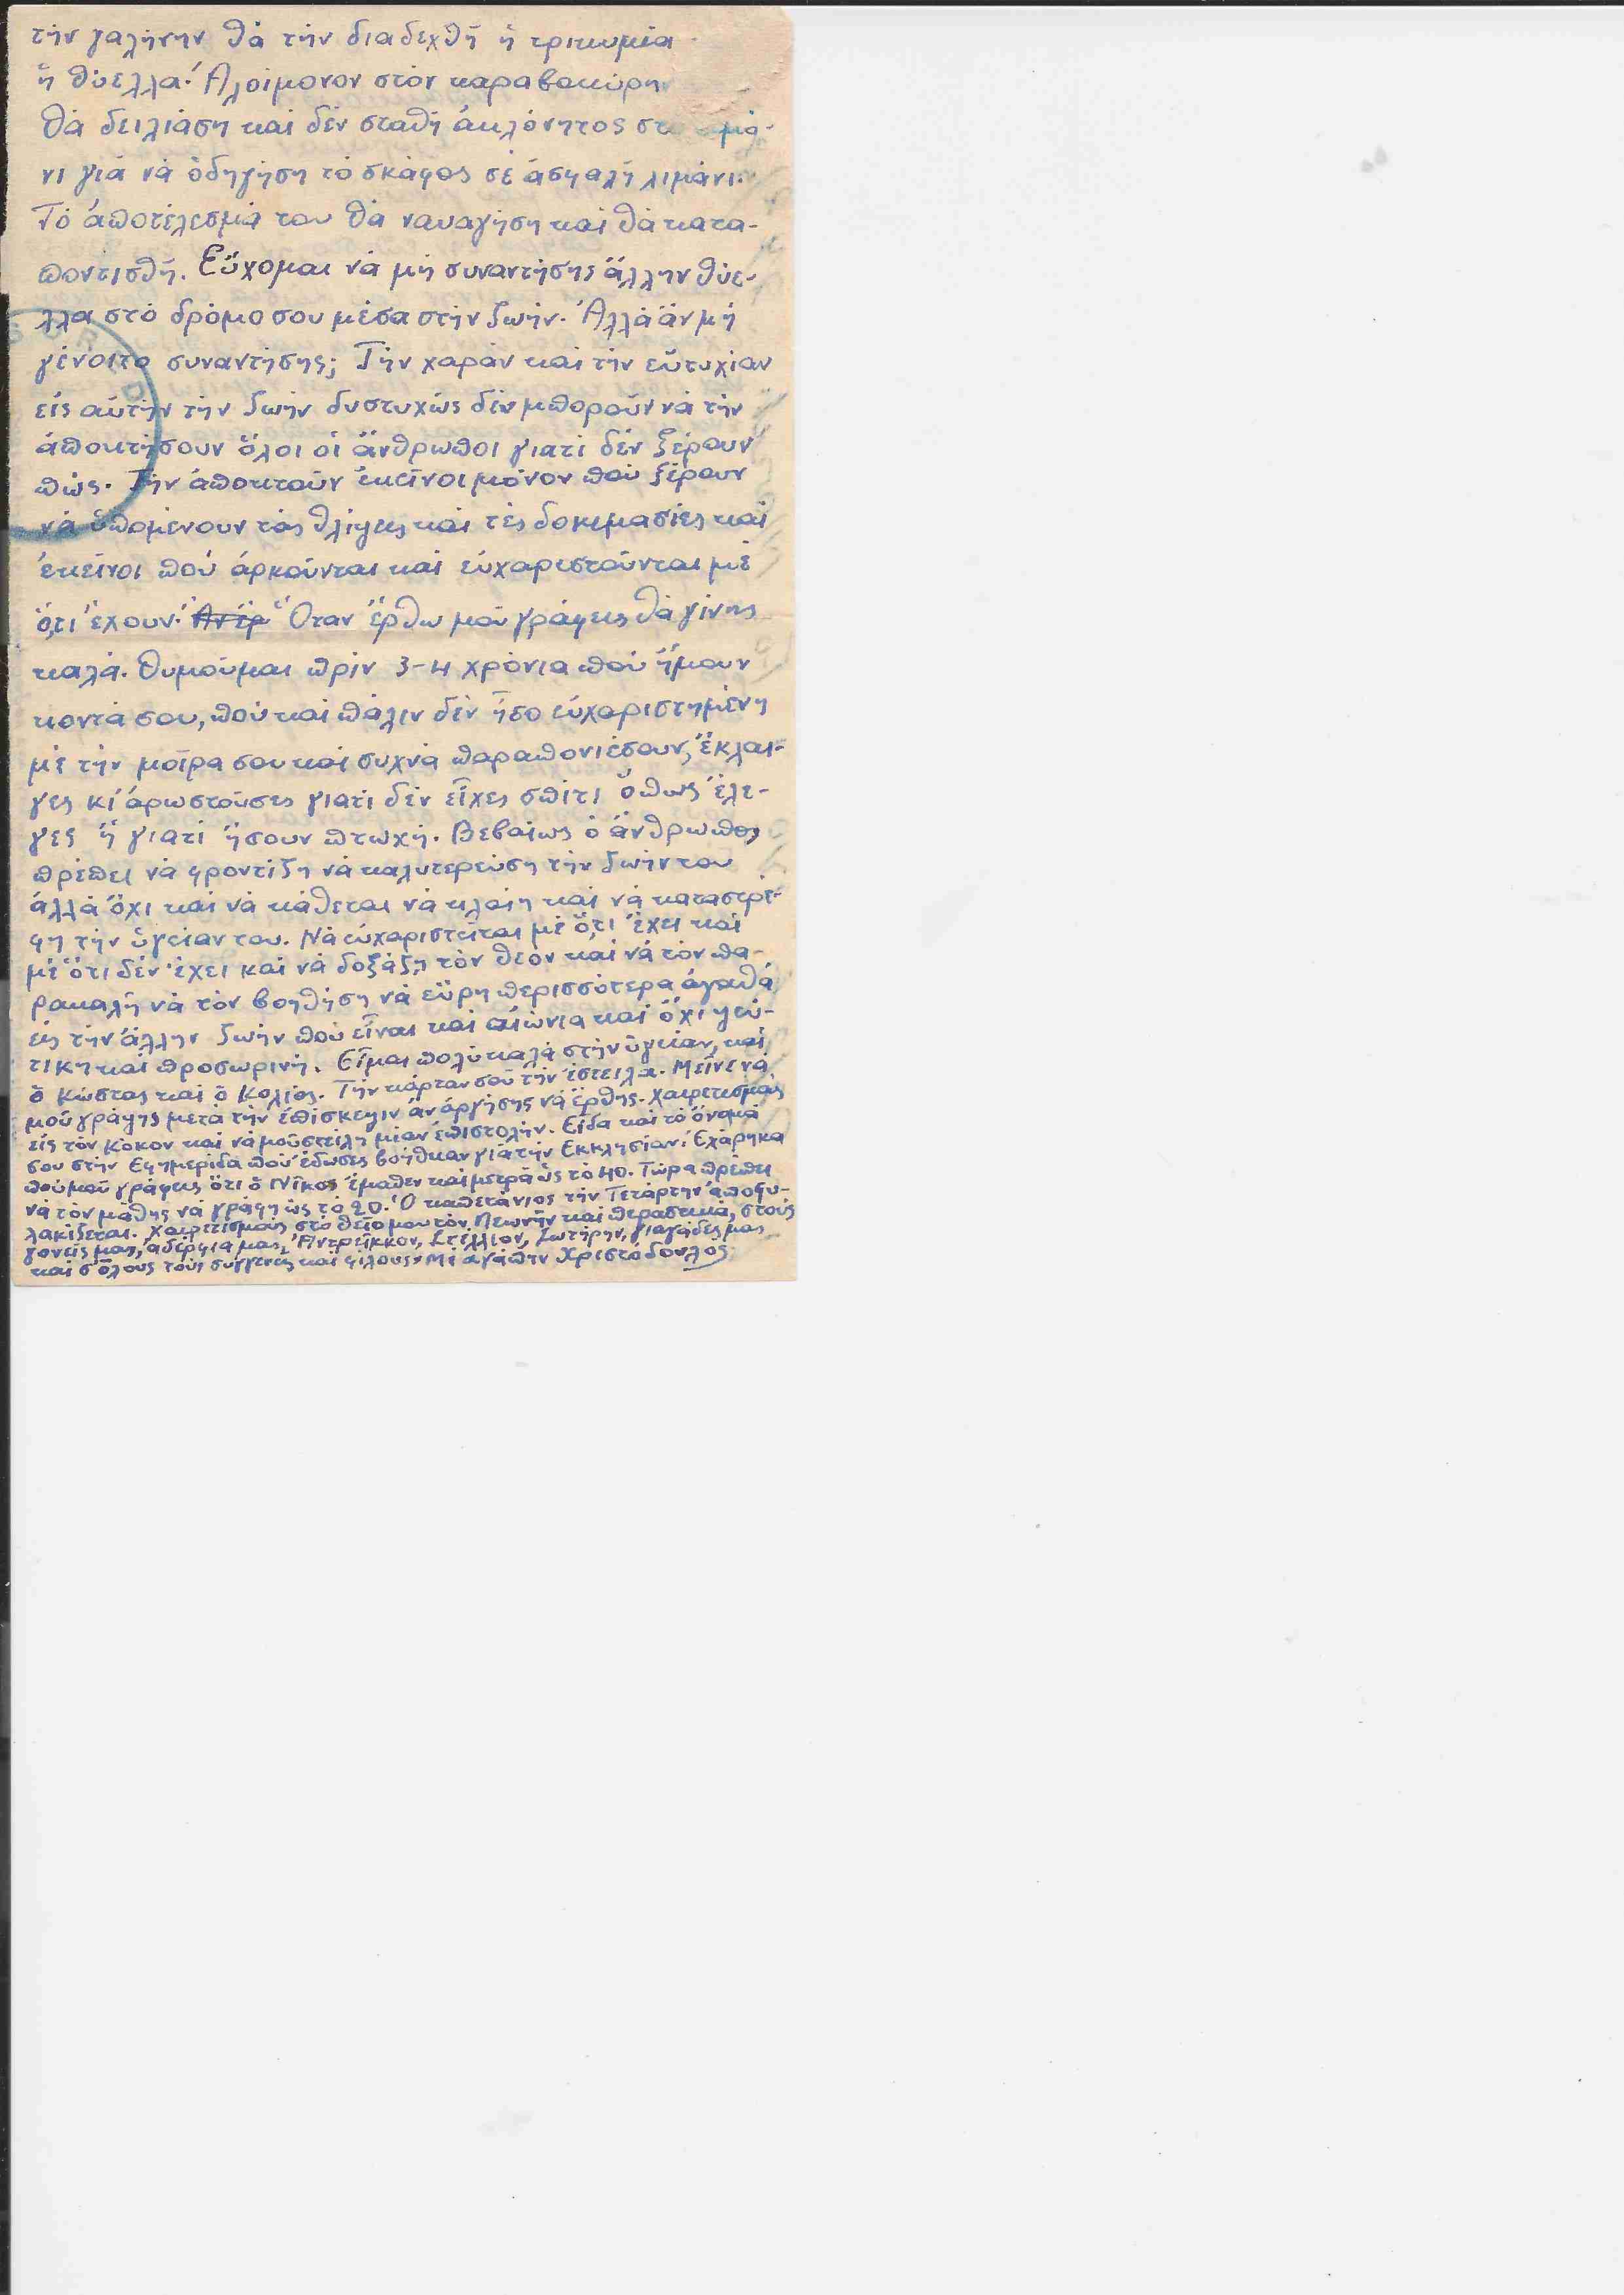 τὴν γαλήνην θὰ τὴν διαδεχθῆ ἡ τρικυμία
ἡ θύελλα. Ἀλοίμονον στὸν καραβοκύρην
θὰ δειλιάση καὶ δὲν σταθῆ ἀκλόνητος στὸ
νι γιὰ νὰ ὁδηγήση τὸ σκάφος σὲ ἀσφαλῆ λιμάνι.
Τὸ ἀποτέλεσμά του θὰ ναυαγήση καὶ θὰ κατα-
ποντισθῆ. Εὔχομαι νὰ μὴ συναντήσης ἄλλην θύε-
λλα στὸ δρόμο σου μέσα στὴν ζωήν. Ἀλλὰ ἂν μὴ
γένοιτο συναντήσης; Τὴν χαρὰν καὶ τὴν εὐτυχίαν
εἰς αὐτὴν τὴν ζωὴν δυστυχῶς δὲν μποροῦν νὰ τὴν
ἀποκτήσουν ὅλοι οἱ ἄνθρωποι γιατὶ δὲν ξέρουν
πῶς. Τὴν ἀποκτοῦν ἐκεῖνοι μόνον ποὺ ξέρουν
νὰ ὑπομένουν τὰς θλίψεις καὶ τὲς δοκιμασίες καὶ
ἐκεῖνοι ποὺ ἀρκοῦνται καὶ εὐχαριστοῦνται μὲ
ὅ,τι ἔχουν. Ἂν ἔρ Ὅταν ἔρθω μοῦ γράφεις θὰ γίνης
καλά. Θυμοῦμαι πρὶν 3-4 χρόνια ποὺ ἤμουν
κοντά σου, ποὺ καὶ πάλιν δὲν ἦσο εὐχαριστημένη
μὲ τὴν μοῖρα σου καὶ συχνὰ παραπονιέσουν, ἔκλαι-
γες κι' ἀρωστοῦσες γιατὶ δὲν εἶχες σπίτι ὅπως ἔλε-
γες ἢ γιατὶ ἤσουν πτωχή. Βεβαίως ὁ ἄνθρωπος
πρέπει νὰ φροντίζη νὰ καλυτερεύση τὴν ζωήν του
ἀλλὰ ὄχι καὶ νὰ κάθεται νὰ κλαίη καὶ νὰ καταστρέ-
φη τὴν ὑγείαν του. Νὰ εὐχαριστεῖται μὲ ὅ,τι ἔχει καὶ
μὲ ὅτι δὲν ἔχει καὶ νὰ δοξάζη τὸν θεὸν καὶ νὰ τὸν πα-
ρακαλῆ νὰ τὸν βοηθήση νὰ εὕρη περισσότερα ἀγαθὰ
εἰς τὴν ἄλλην ζωὴν ποὺ εἶναι καὶ αἰώνια καὶ ὄχι ψεύ-
τικη καὶ προσωρινή. Εἶμαι πολὺ καλὰ στὴν ὑγείαν, καὶ
ὁ Κώστας καὶ ὁ Κολιός. Τὴν κάρταν σοῦ τὴν ἔστειλα. Μεῖνε νὰ
μοῦ γράψης μετὰ τὴν ἐπίσκεψιν ἂν ἀργήσης νὰ ἔρθης. Χαιρετισμοὺς
εἰς τὸν Κόκον καὶ νὰ μοῦ στείλη μίαν ἐπιστολήν. Εἶδα καὶ τὸ ὄνομά
σου στὴν Ἐφημερίδα ποὺ ἔδωσες βοήθειαν γιὰ τὴν Ἐκκλησίαν. Ἐχάρηκα
ποὺ μοῦ γράφεις ὅτι ὁ Νῖκος ἔμαθεν καὶ μετρᾶ ὣς τὸ 40. Τώρα πρέπει
νὰ τὸν μάθης νὰ γράφη ὣς τὸ 20. Ὁ καπετάνιος τὴν Τετάρτην ἀποφυ-
λακίζεται. Χαιρετισμοὺς στὸ θεῖο μου τὸν καὶ περαστικά, στοὺς
γονεῖς μας, ἀδέρφια μας, Ἀντρεῖκκον, Στέλλιον, Σωτήρην, γιαγιάδες μας
καὶ σ' ὅλους τοὺς συγγενεῖς καὶ φίλους. Μὲ ἀγάπην Χριστόδουλος